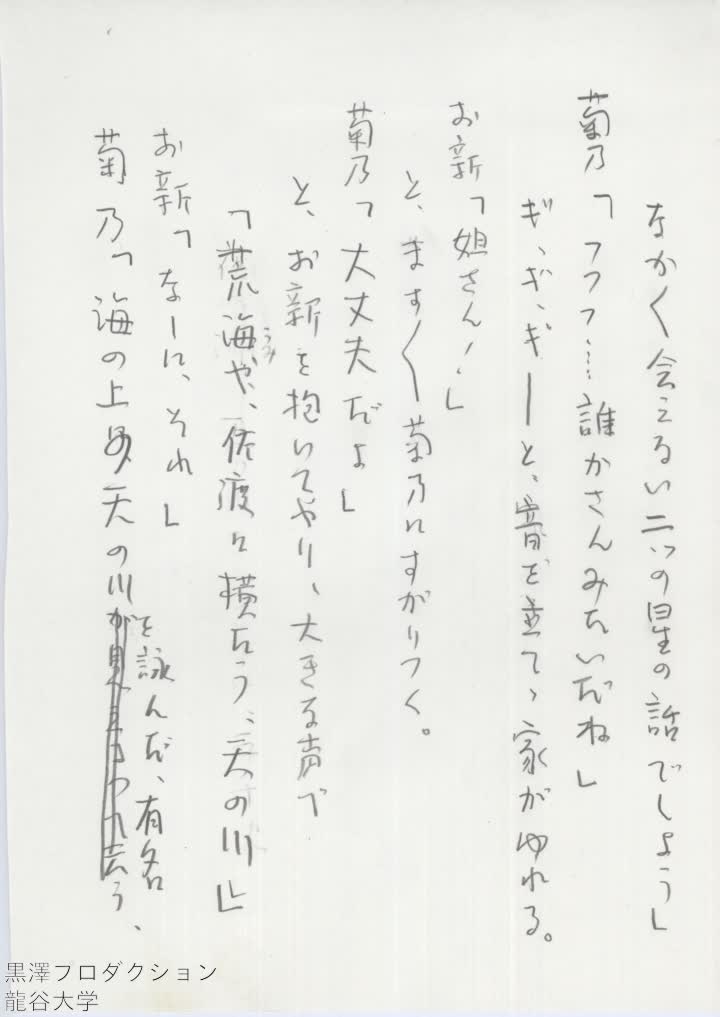 なかく会えない二つの星の話でしょう」
菊乃「フフフ……誰かさんみたいだね」
ギ、ギ、ギーと、音を立て、家がゆれる。
お新「姐さん！」
と、ます〱菊乃にすがりつく。
菊乃「大丈夫だよ」
と、お新を抱いてやり、大きな声で
「荒海や、佐渡に横たう、天の川」
うみ
お新「なーに、それ」
菊乃「海の上の天の川
を詠んだ、有名
う、
黒澤プロダクション
龍谷大学